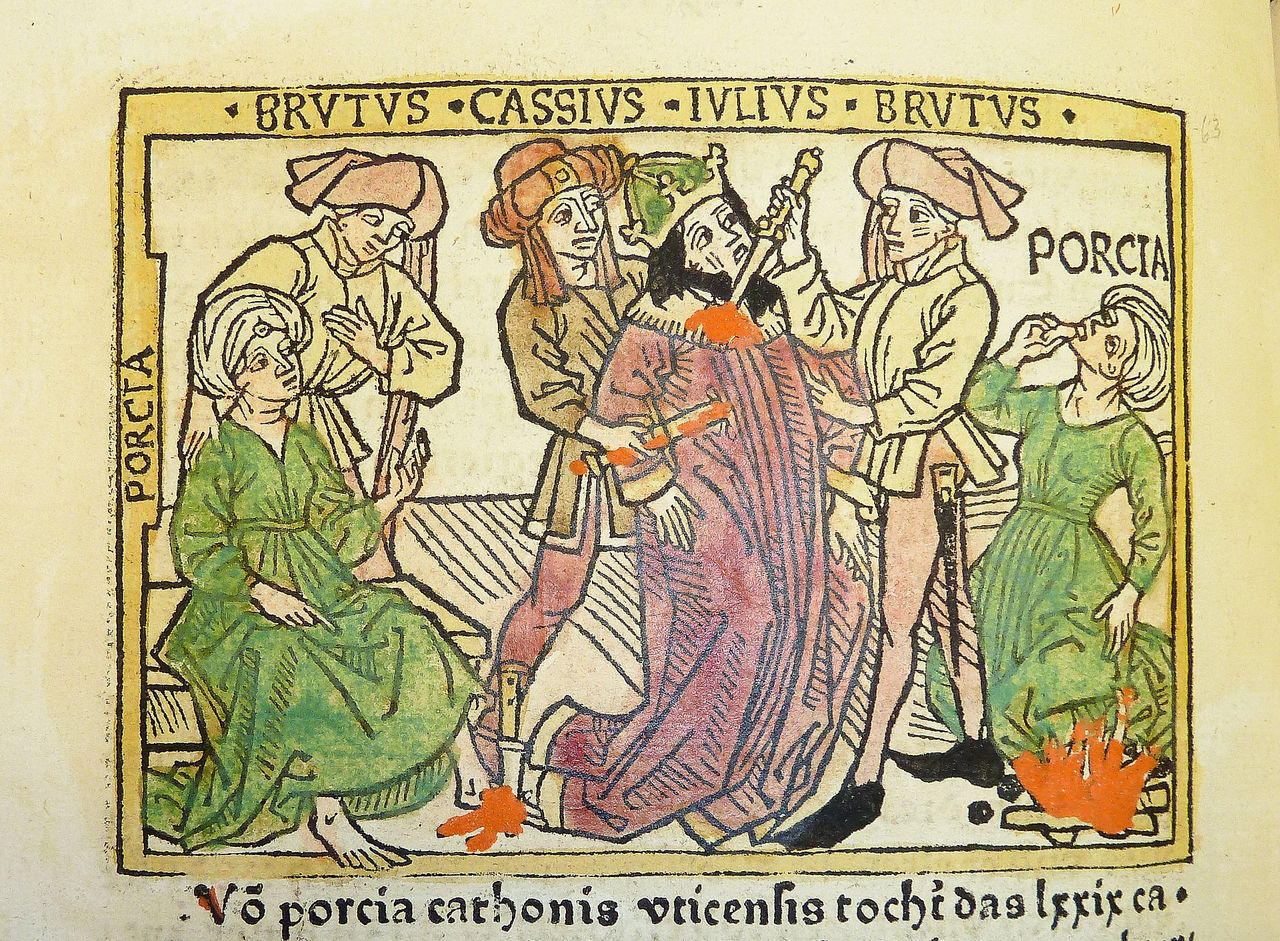 · BRVTVS · CASSIVS · IVLIVS · BRVTVS ·
PORCIA
PORCIA
63
. Võ porcia cathonis vticensis tochť das lxxix ca·